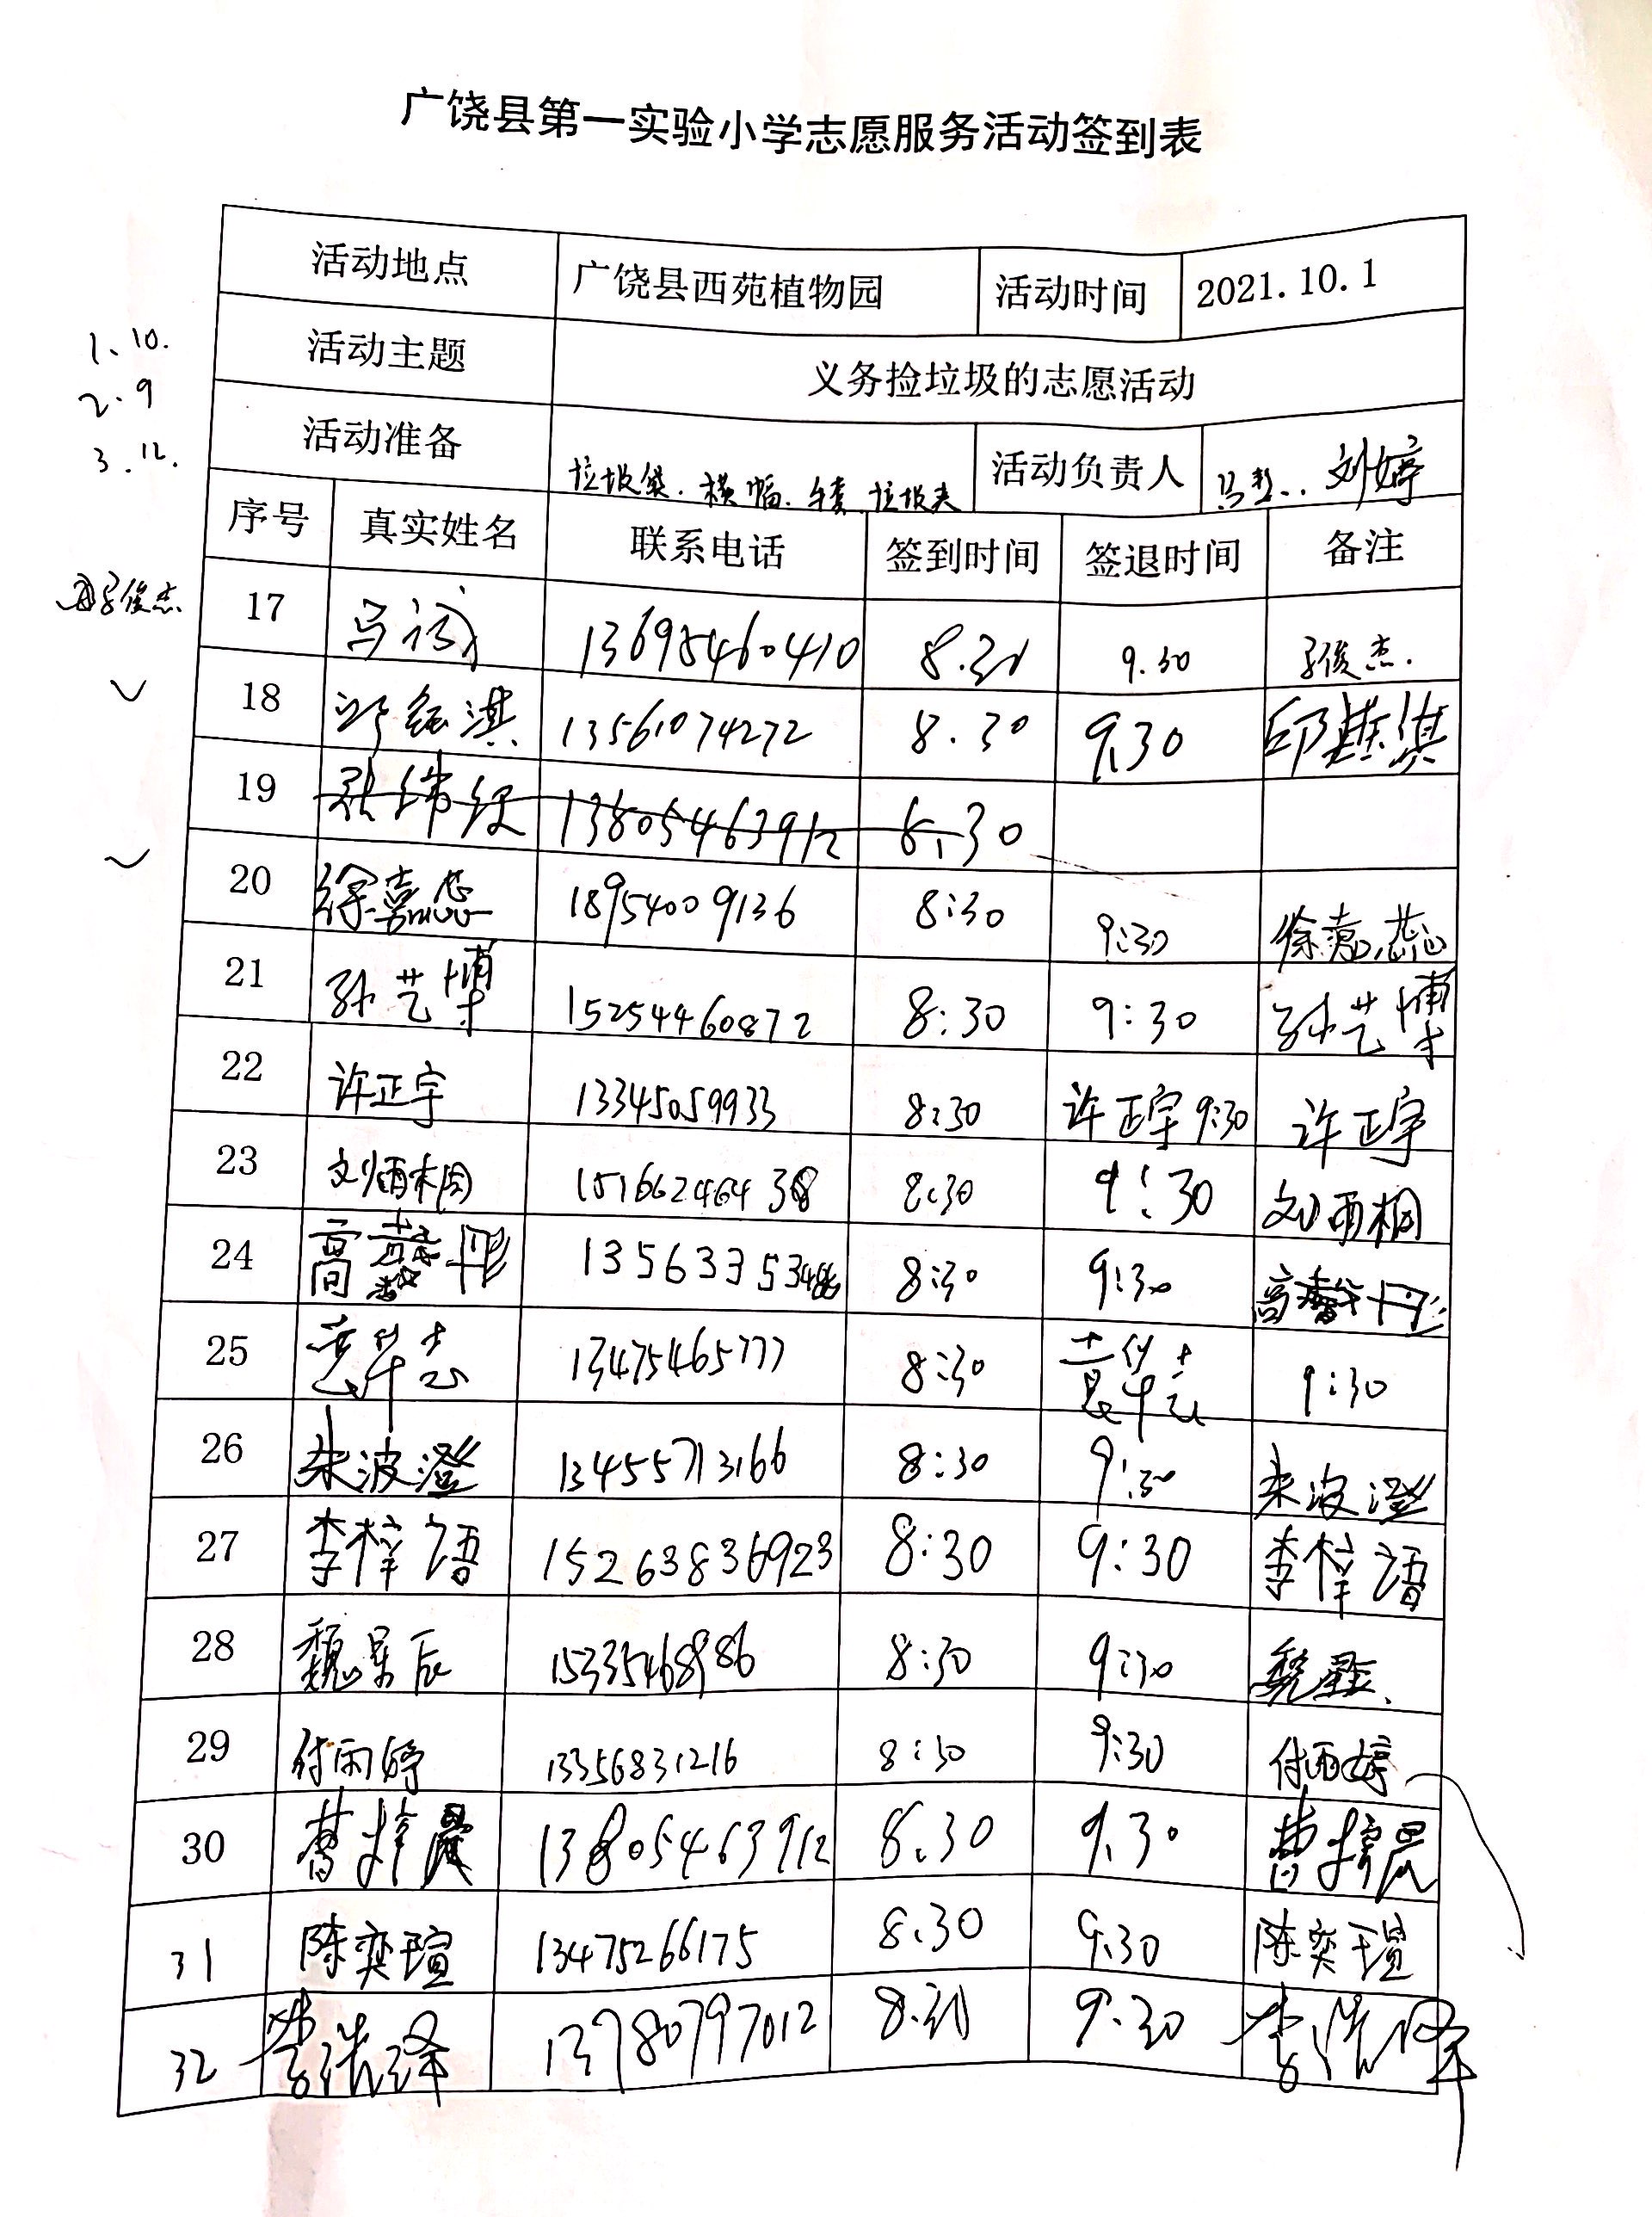 广饶县第一实验小学志愿服务活动签到表
活动地点 广饶县西苑植物园 活动时间 2021.10.1
1、10.
活动主题 义务捡垃圾的志愿活动
2.9
活动准备 垃圾袋.横幅.手套.垃圾夹 活动负责人 刘婷
3.12.
序号 真实姓名 联系电话 签到时间 签退时间 备注
17 马诚 13695460410 8.30 9.30 俊杰.
18 淇 13561074272 8.30 9.30 邱淇
19 13805463912 8.30
20 徐嘉蕊 18954009136 8:30 9:30 徐嘉蕊
21 孙艺博 15254460872 8:30 9:30 孙艺博
22 许正宇 13345059933 8:30 许正宇 9:30 许正宇
23 刘雨桐 15166246438 8:30 9:30 刘雨桐
24 高馨彤 8:30 9:30 高馨彤
25 13475465777 8:30 9:30
26 朱波澄 13455713166 8:30 9:30 朱波澄
27 李梓语 15263836923 8:30 9:30 李梓语
28 魏星辰 15335468986 8:30 9:30 魏星辰
29 付雨婷 13356831216 8:30 9:30 付雨婷
30 曹梓晨 13805463912 8.30 9.30 曹梓晨
31 陈奕瑄 13475266175 8.30 9.30 陈奕瑄
32 李浩泽 13780797012 8.30 9.30 李浩泽